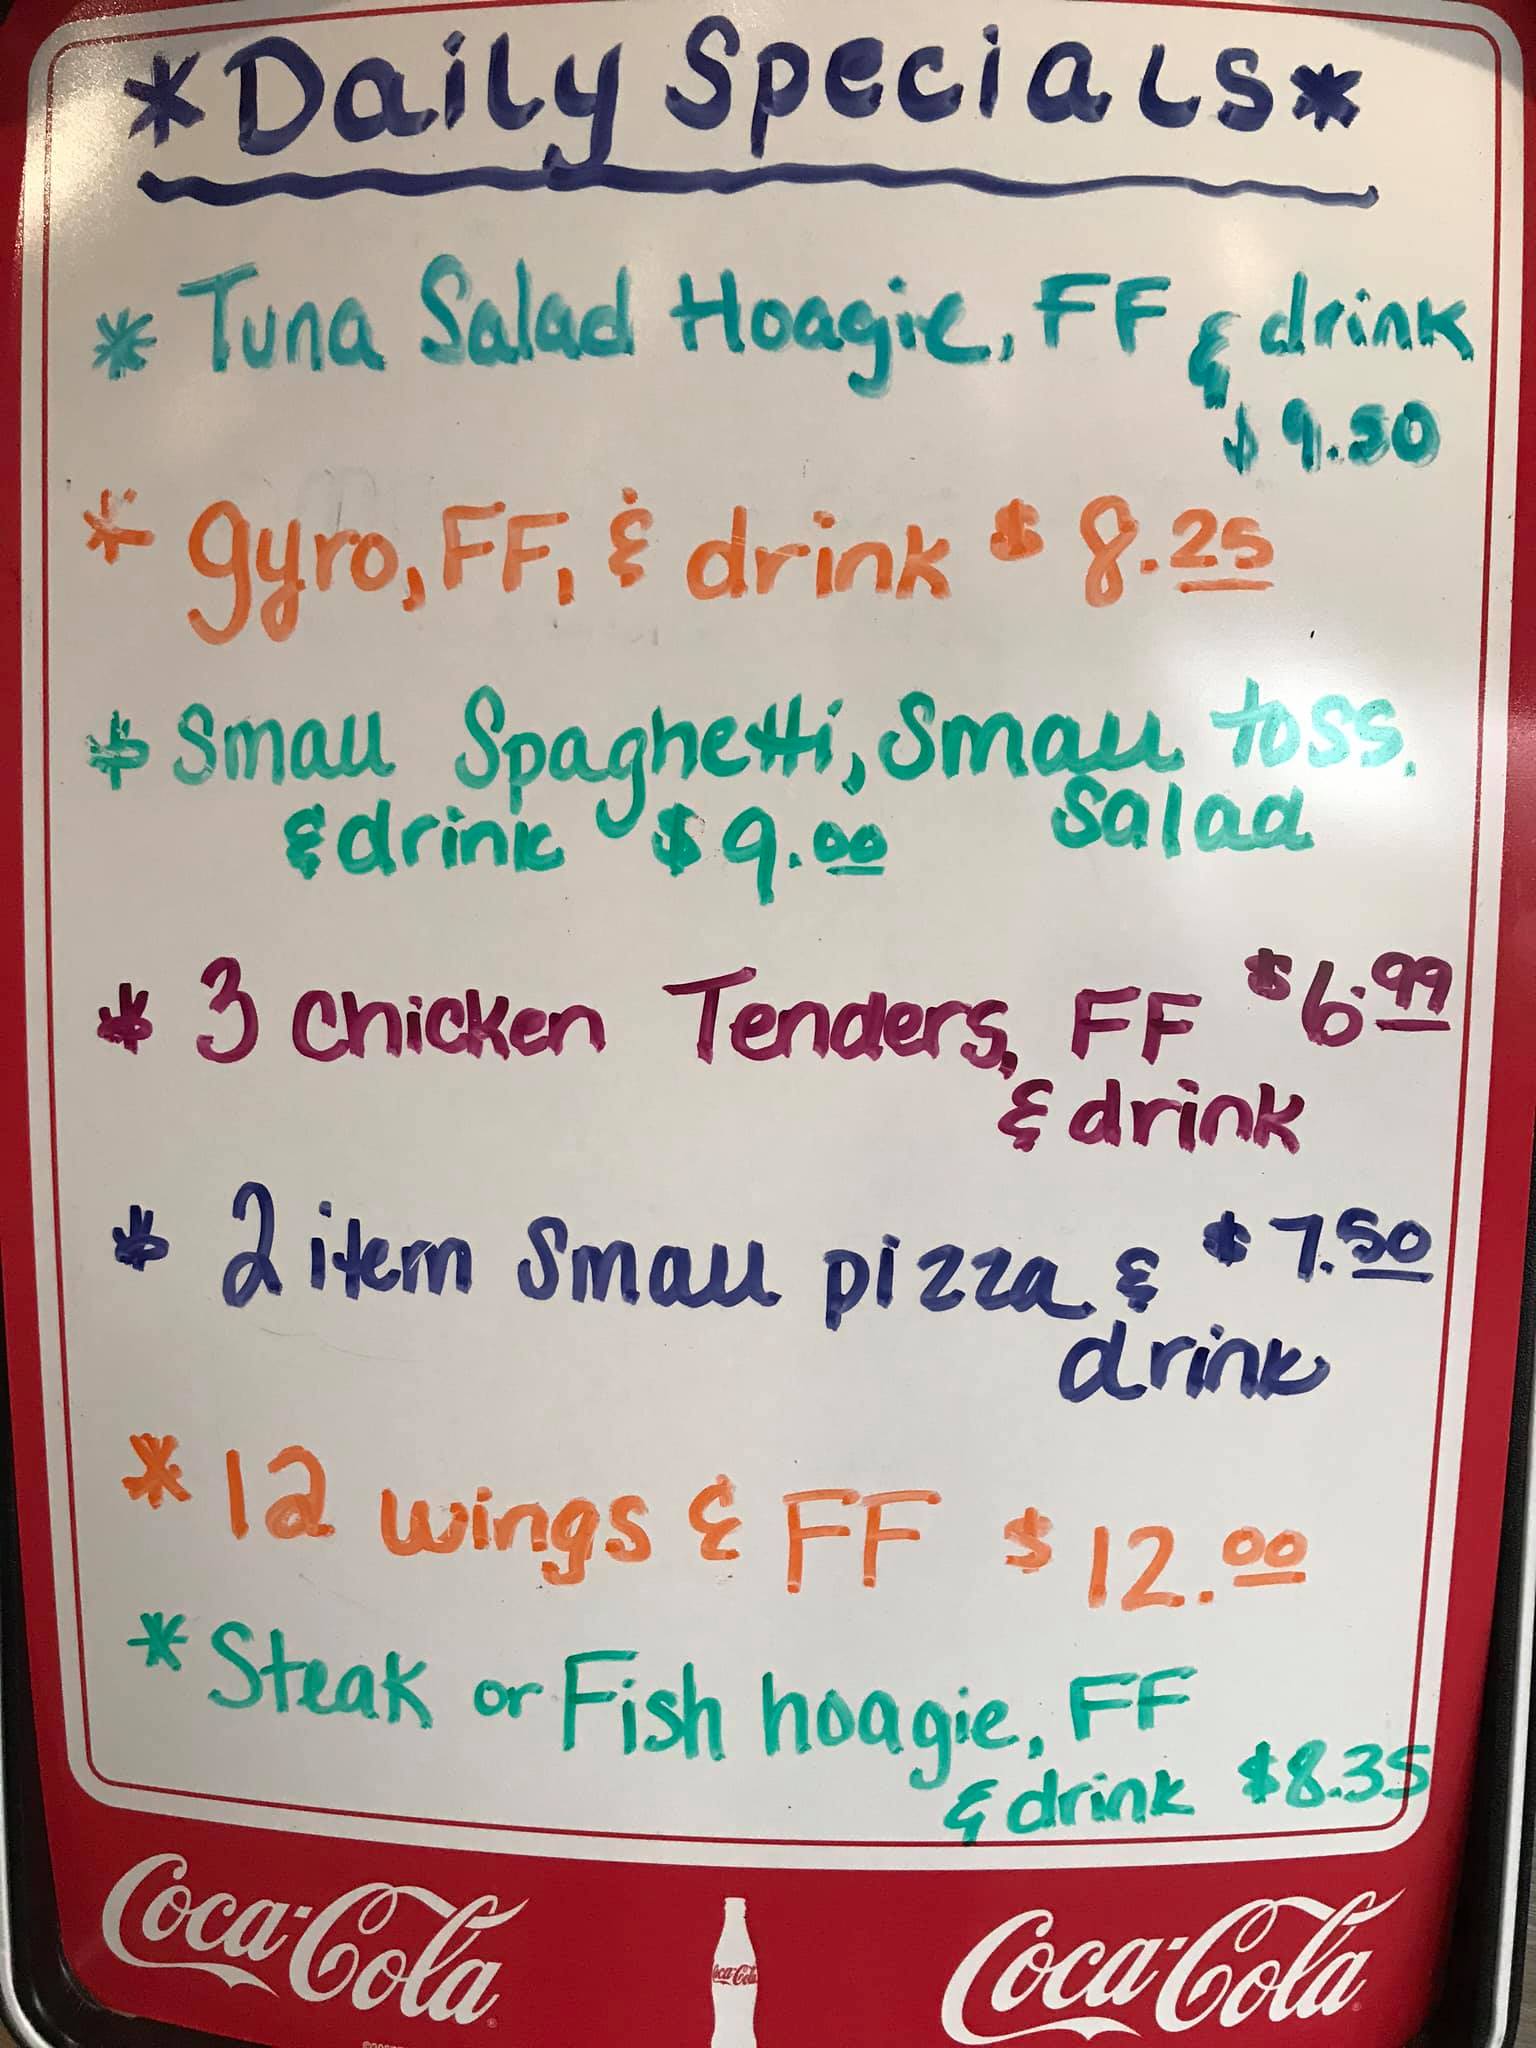 *Daily Specials*
* Tuna Salad Hoagie, FF & drink
$9.50
* Gyro, FF, & drink $8.25
* Small Spaghetti, Small toss.
& drink $9.00 Salad
* 3 Chicken Tenders, FF $6.99
& drink
* 2 item Small pizza & $7.50
drink
* 12 wings & FF $12.00
* Steak or Fish hoagie, FF
& drink $8.35
Coca-Cola
Coca-Cola
Coca-Cola